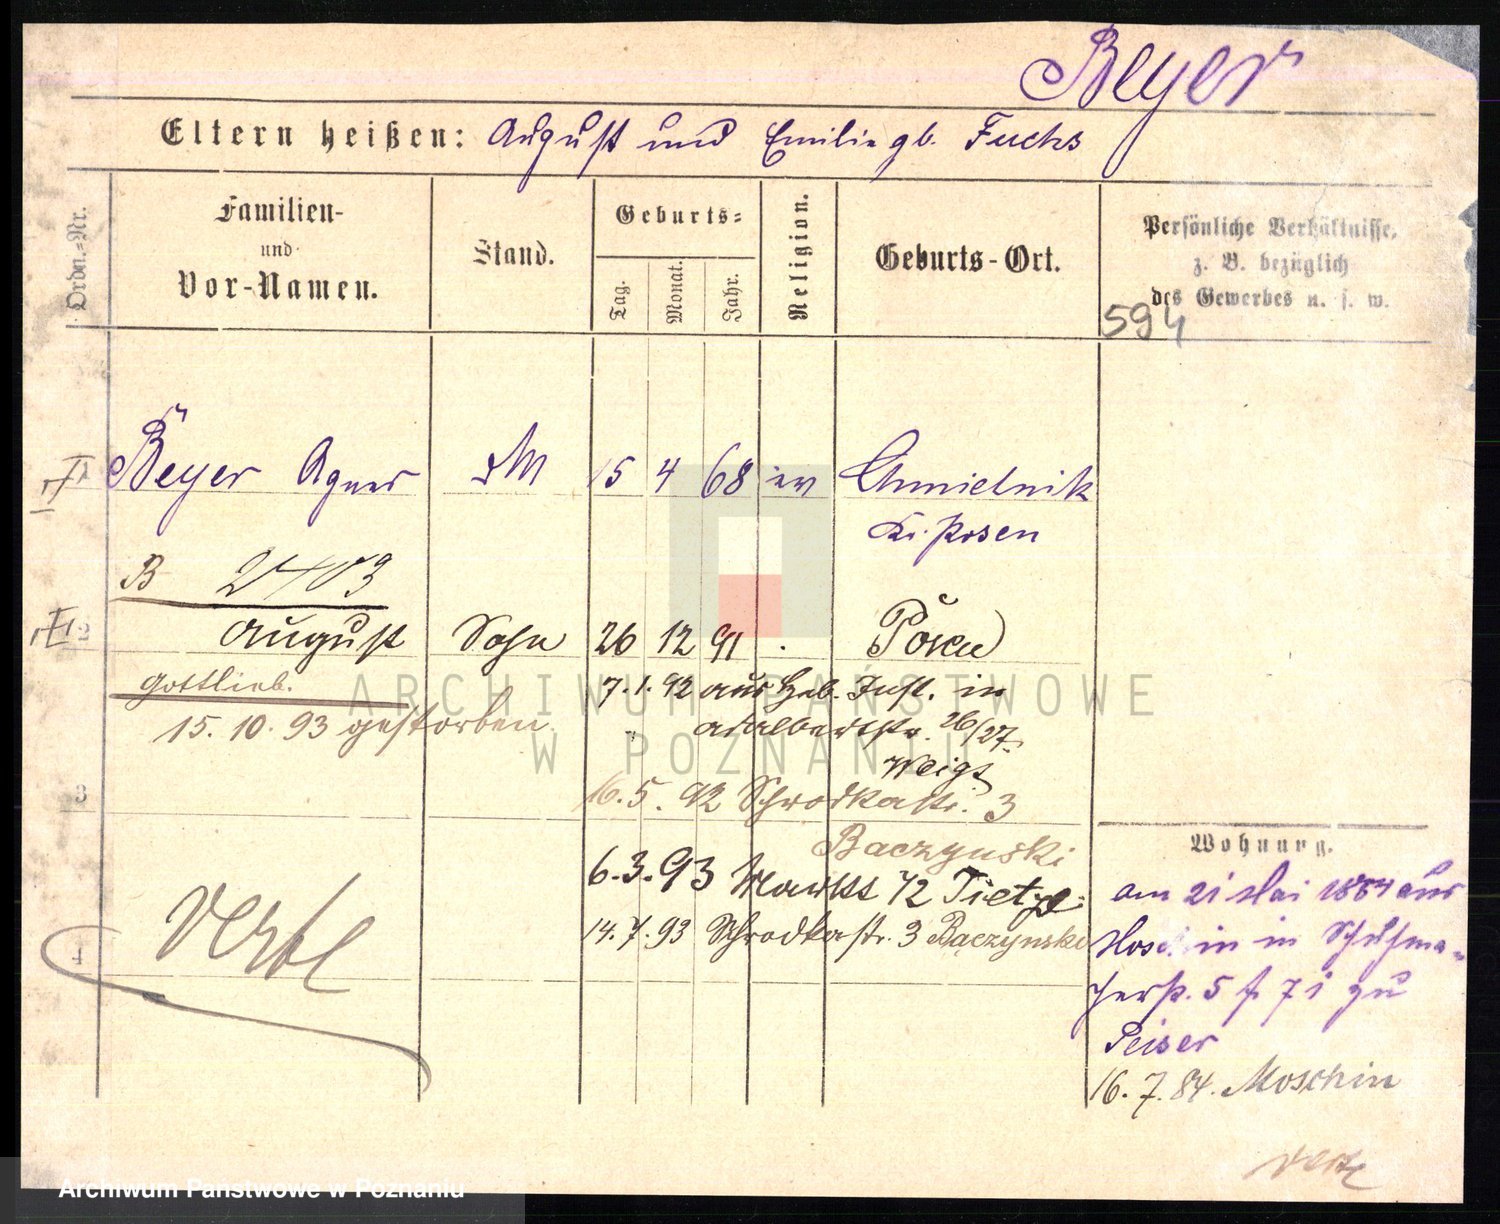 Beyer
Eltern heißen: August und Emilie gb. Fuchs
Ordn.-Nr.
Familien-
und
Vor-Namen.
Stand.
Geburts-
Tag.
Monat.
Jahr.
Religion.
Geburts-Ort.
Persönliche Verhältnisse,
z. B. bezüglich
des Gewerbes u. s. w.
594
1 Beyer Agnes 15 4 68 ev Chmielnik
Kr. Posen
B 2403
2 August Sohn 26 12 91 Posen
Gottlieb.
7.1.92 aus Geb. Inst. in
Adalbertstr. 26/27.
Weigt
15.10.93 gestorben
3
16.5.92 Schrodkastr. 3
Baczynski
6.3.93 Markt 72 Tietze
14.7.93 Schrodkastr. 3 Baczynski
4
Wohnung.
am 21 Mai 1884 aus
Moschin in Schuhma-
cherstr. 5 f. 71 zu
Peiser
16.7.84. Moschin
ARCHIWUM PAŃSTWOWE
W POZNANIU
Archiwum Państwowe w Poznaniu